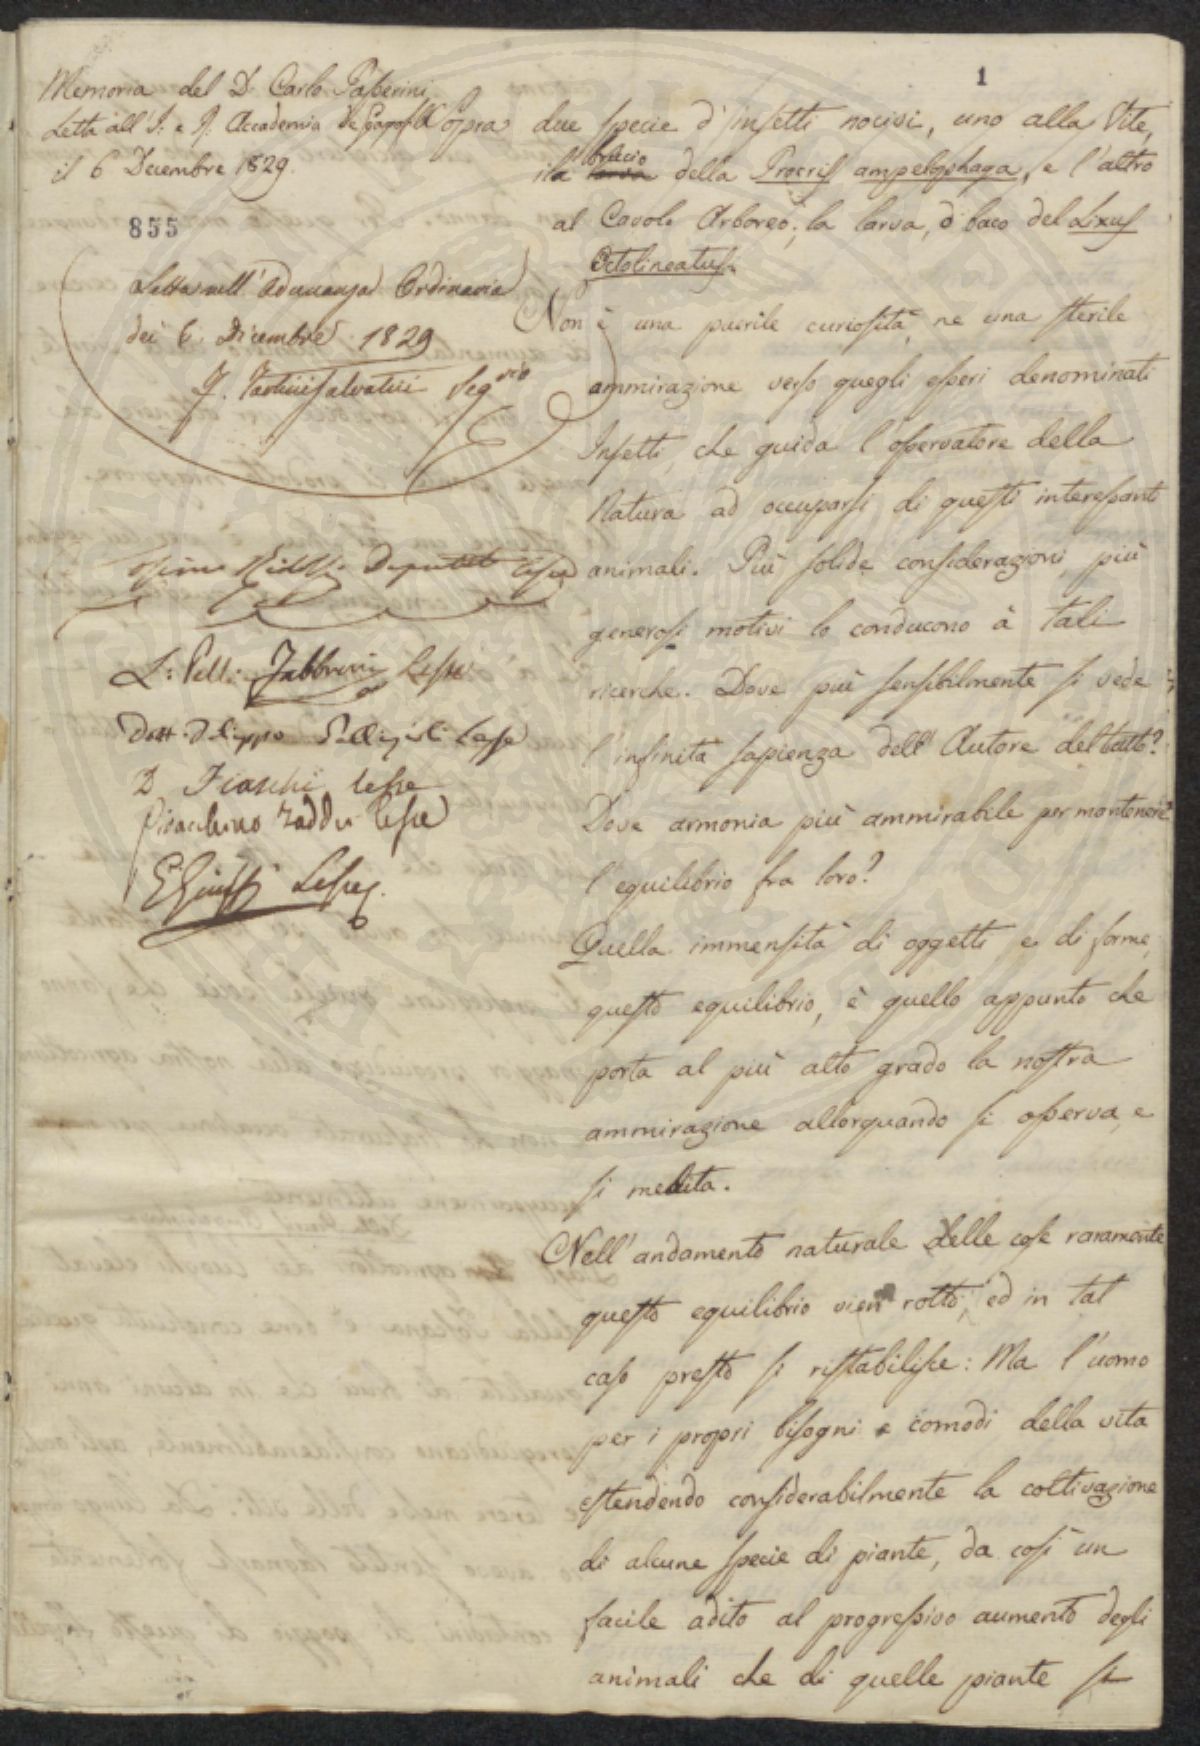 1
Memoria del D. Carlo Passerini
Letta all'I. e R. Accademia de Georgofili Sopra
il 6 Decembre 1829.
855
Letta nell'Adunanza Ordinaria
dei 6. Dicembre 1829
Segrio
Deputato
L: Pell: Fabbroni Lesse
Dott. Filippo Lesse
Fiaschi lesse
Gioacchino Taddei lesse
E Giusti Lesse
due specie d'insetti nocivi, uno alla Vite,
il bracio della Procris ampelophaga, e l'altro
al Cavolo Arboreo; la larva, o baco del Lixus
Octolineatus.
Non è una puerile curiosità, ne una sterile
ammirazione verso quegli esseri denominati
Insetti, che guida l'osservatore della
Natura ad occuparsi di questi interessanti
animali. Più solide considerazioni, più
generosi motivi lo conducono à tali
ricerche. Dove più sensibilmente si vede
l'infinita sapienza dell'Autore del tutto?
Dove armonia più ammirabile per mantenere
l'equilibrio fra loro?
Quella immensità di oggetti, e di forme,
questo equilibrio, è quello appunto che
porta al più alto grado la nostra
ammirazione allorquando si osserva, e
si medita.
Nell'andamento naturale delle cose raramente
questo equilibrio vien rotto, ed in tal
caso presto si ristabilisce: Ma l'uomo
per i propri bisogni e comodi della vita
estendendo considerabilmente la coltivazione
di alcune specie di piante, da così un
facile adito al progressivo aumento degli
animali che di quelle piante si